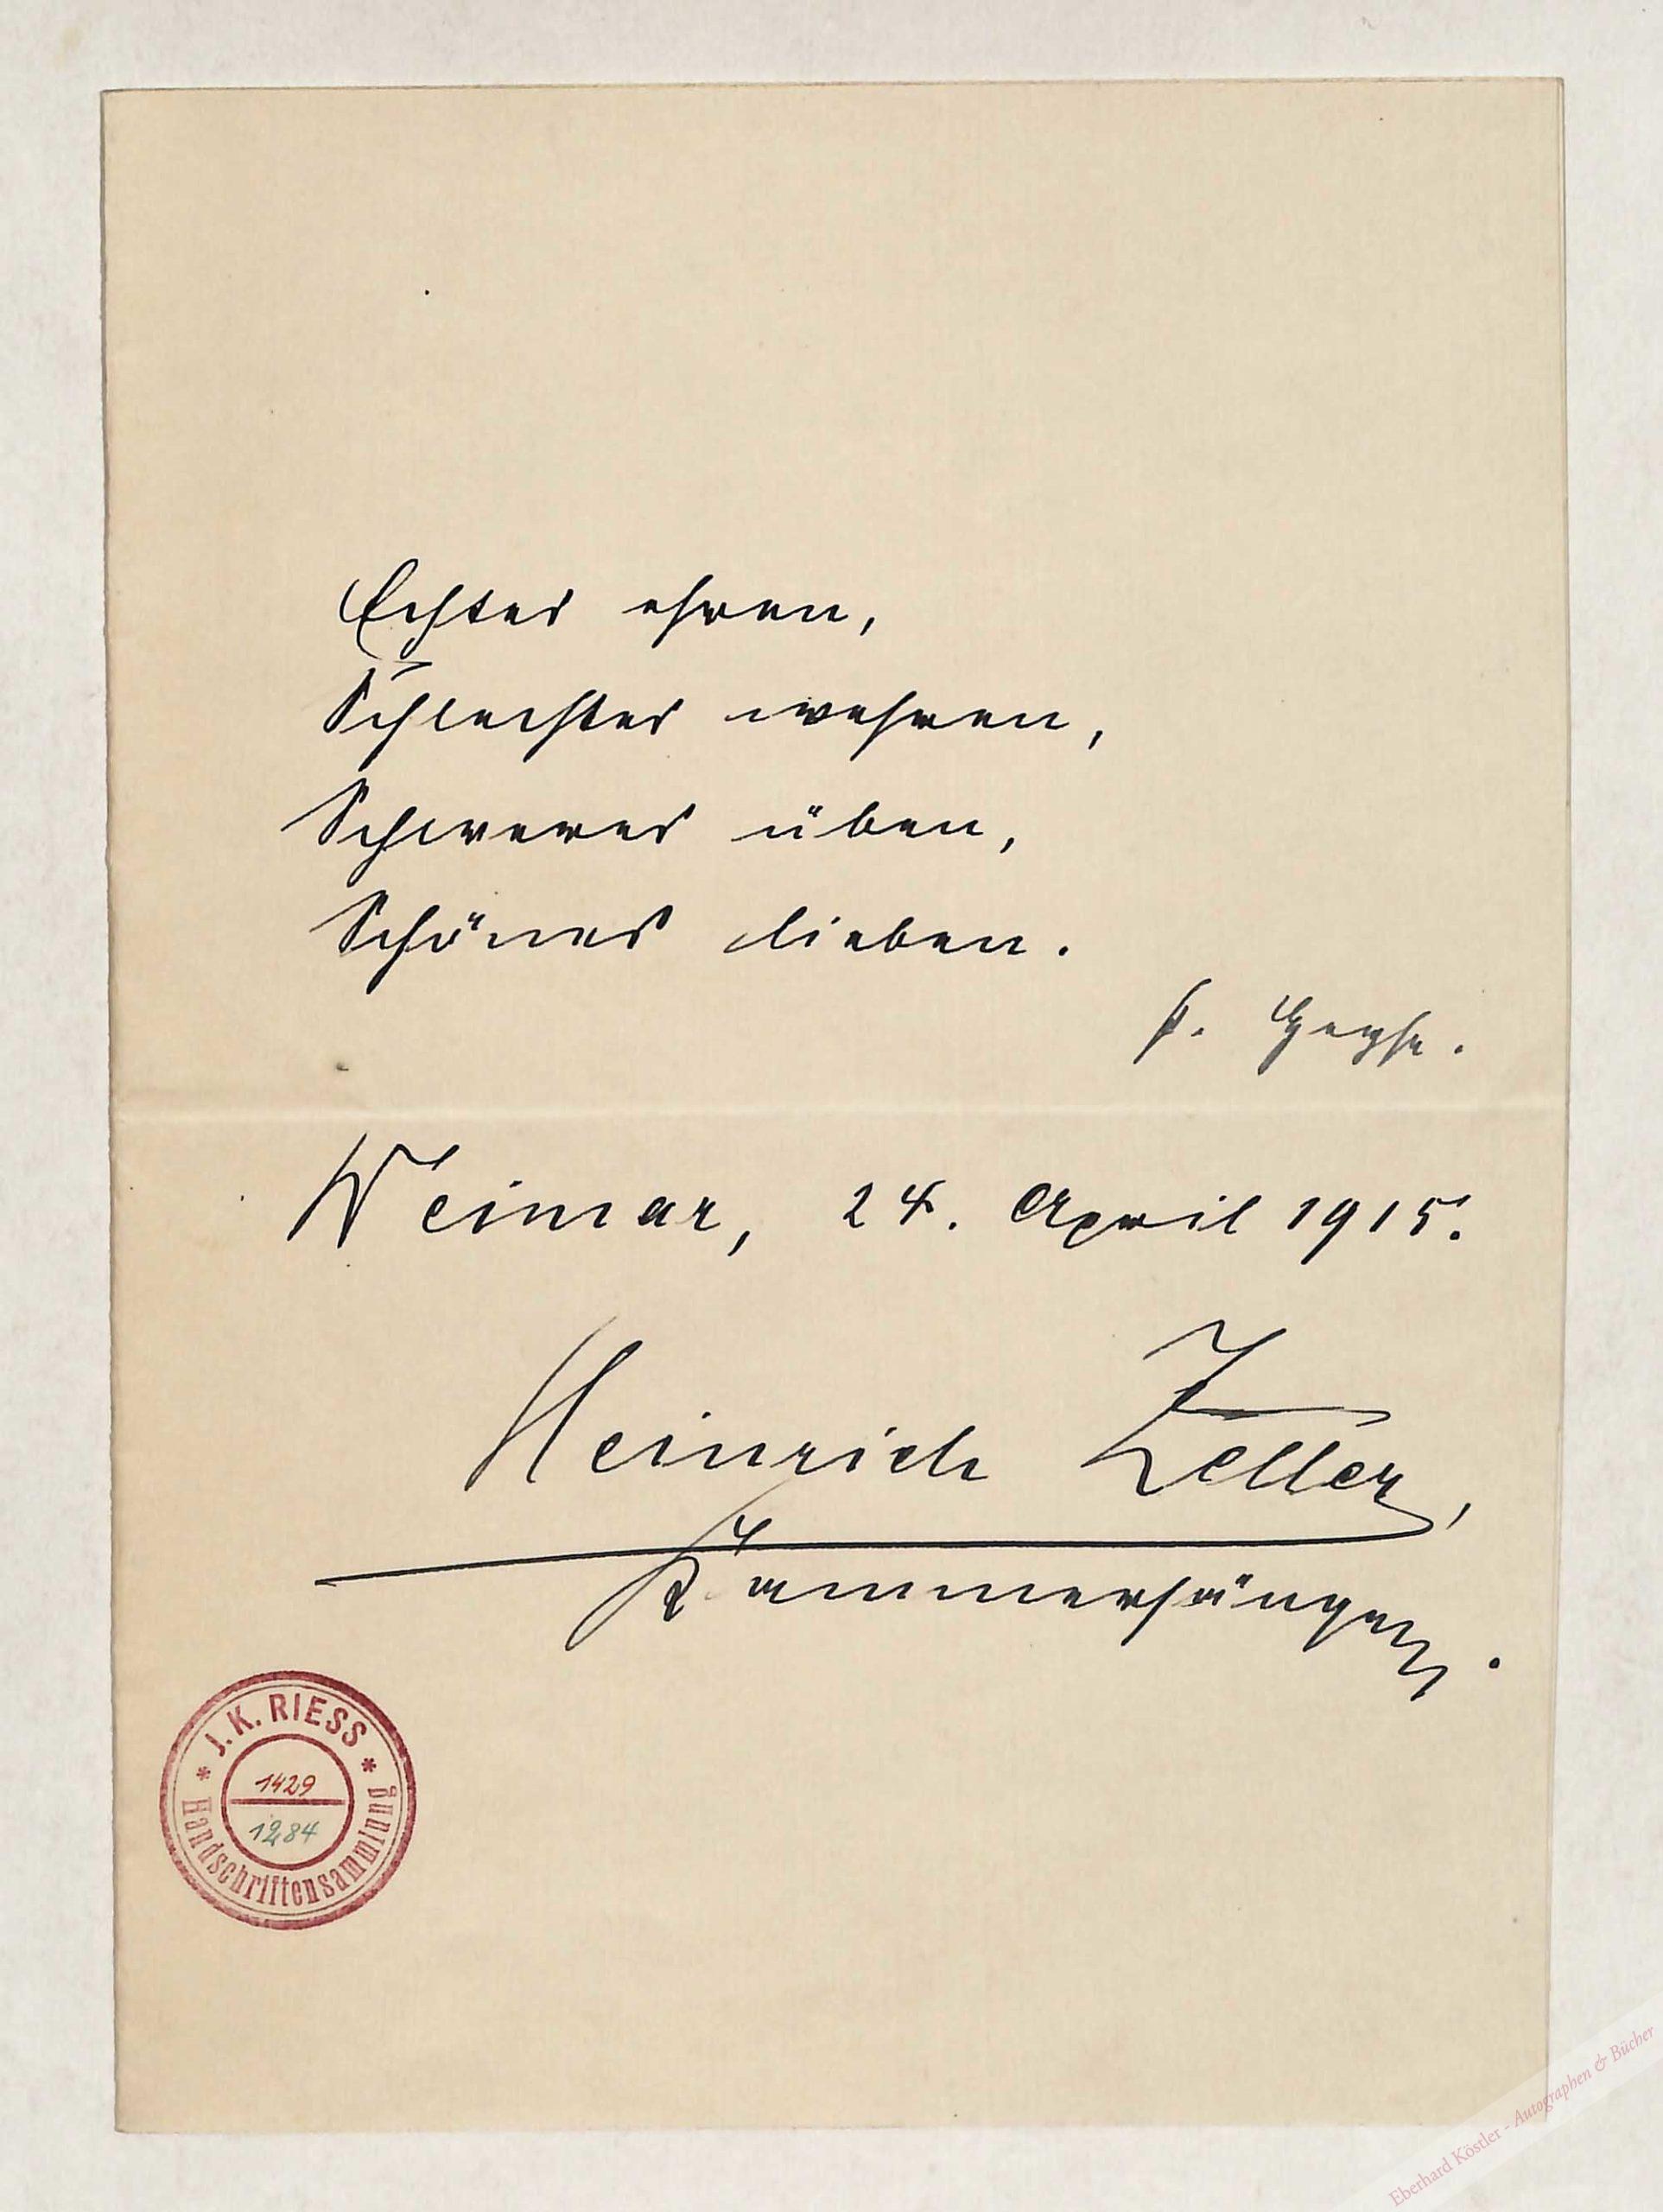 Echtes ehren,
Schlechtes wehren,
Schweres üben,
Schönes lieben.
P. Heyse.
Weimar, 24. April 1915.
Heinrich Zeller,
Kammersänger.
* J. K. RIESS *
1429
1284
Handschriftensammlung
Eberhard Köstler - Autographen & Bücher